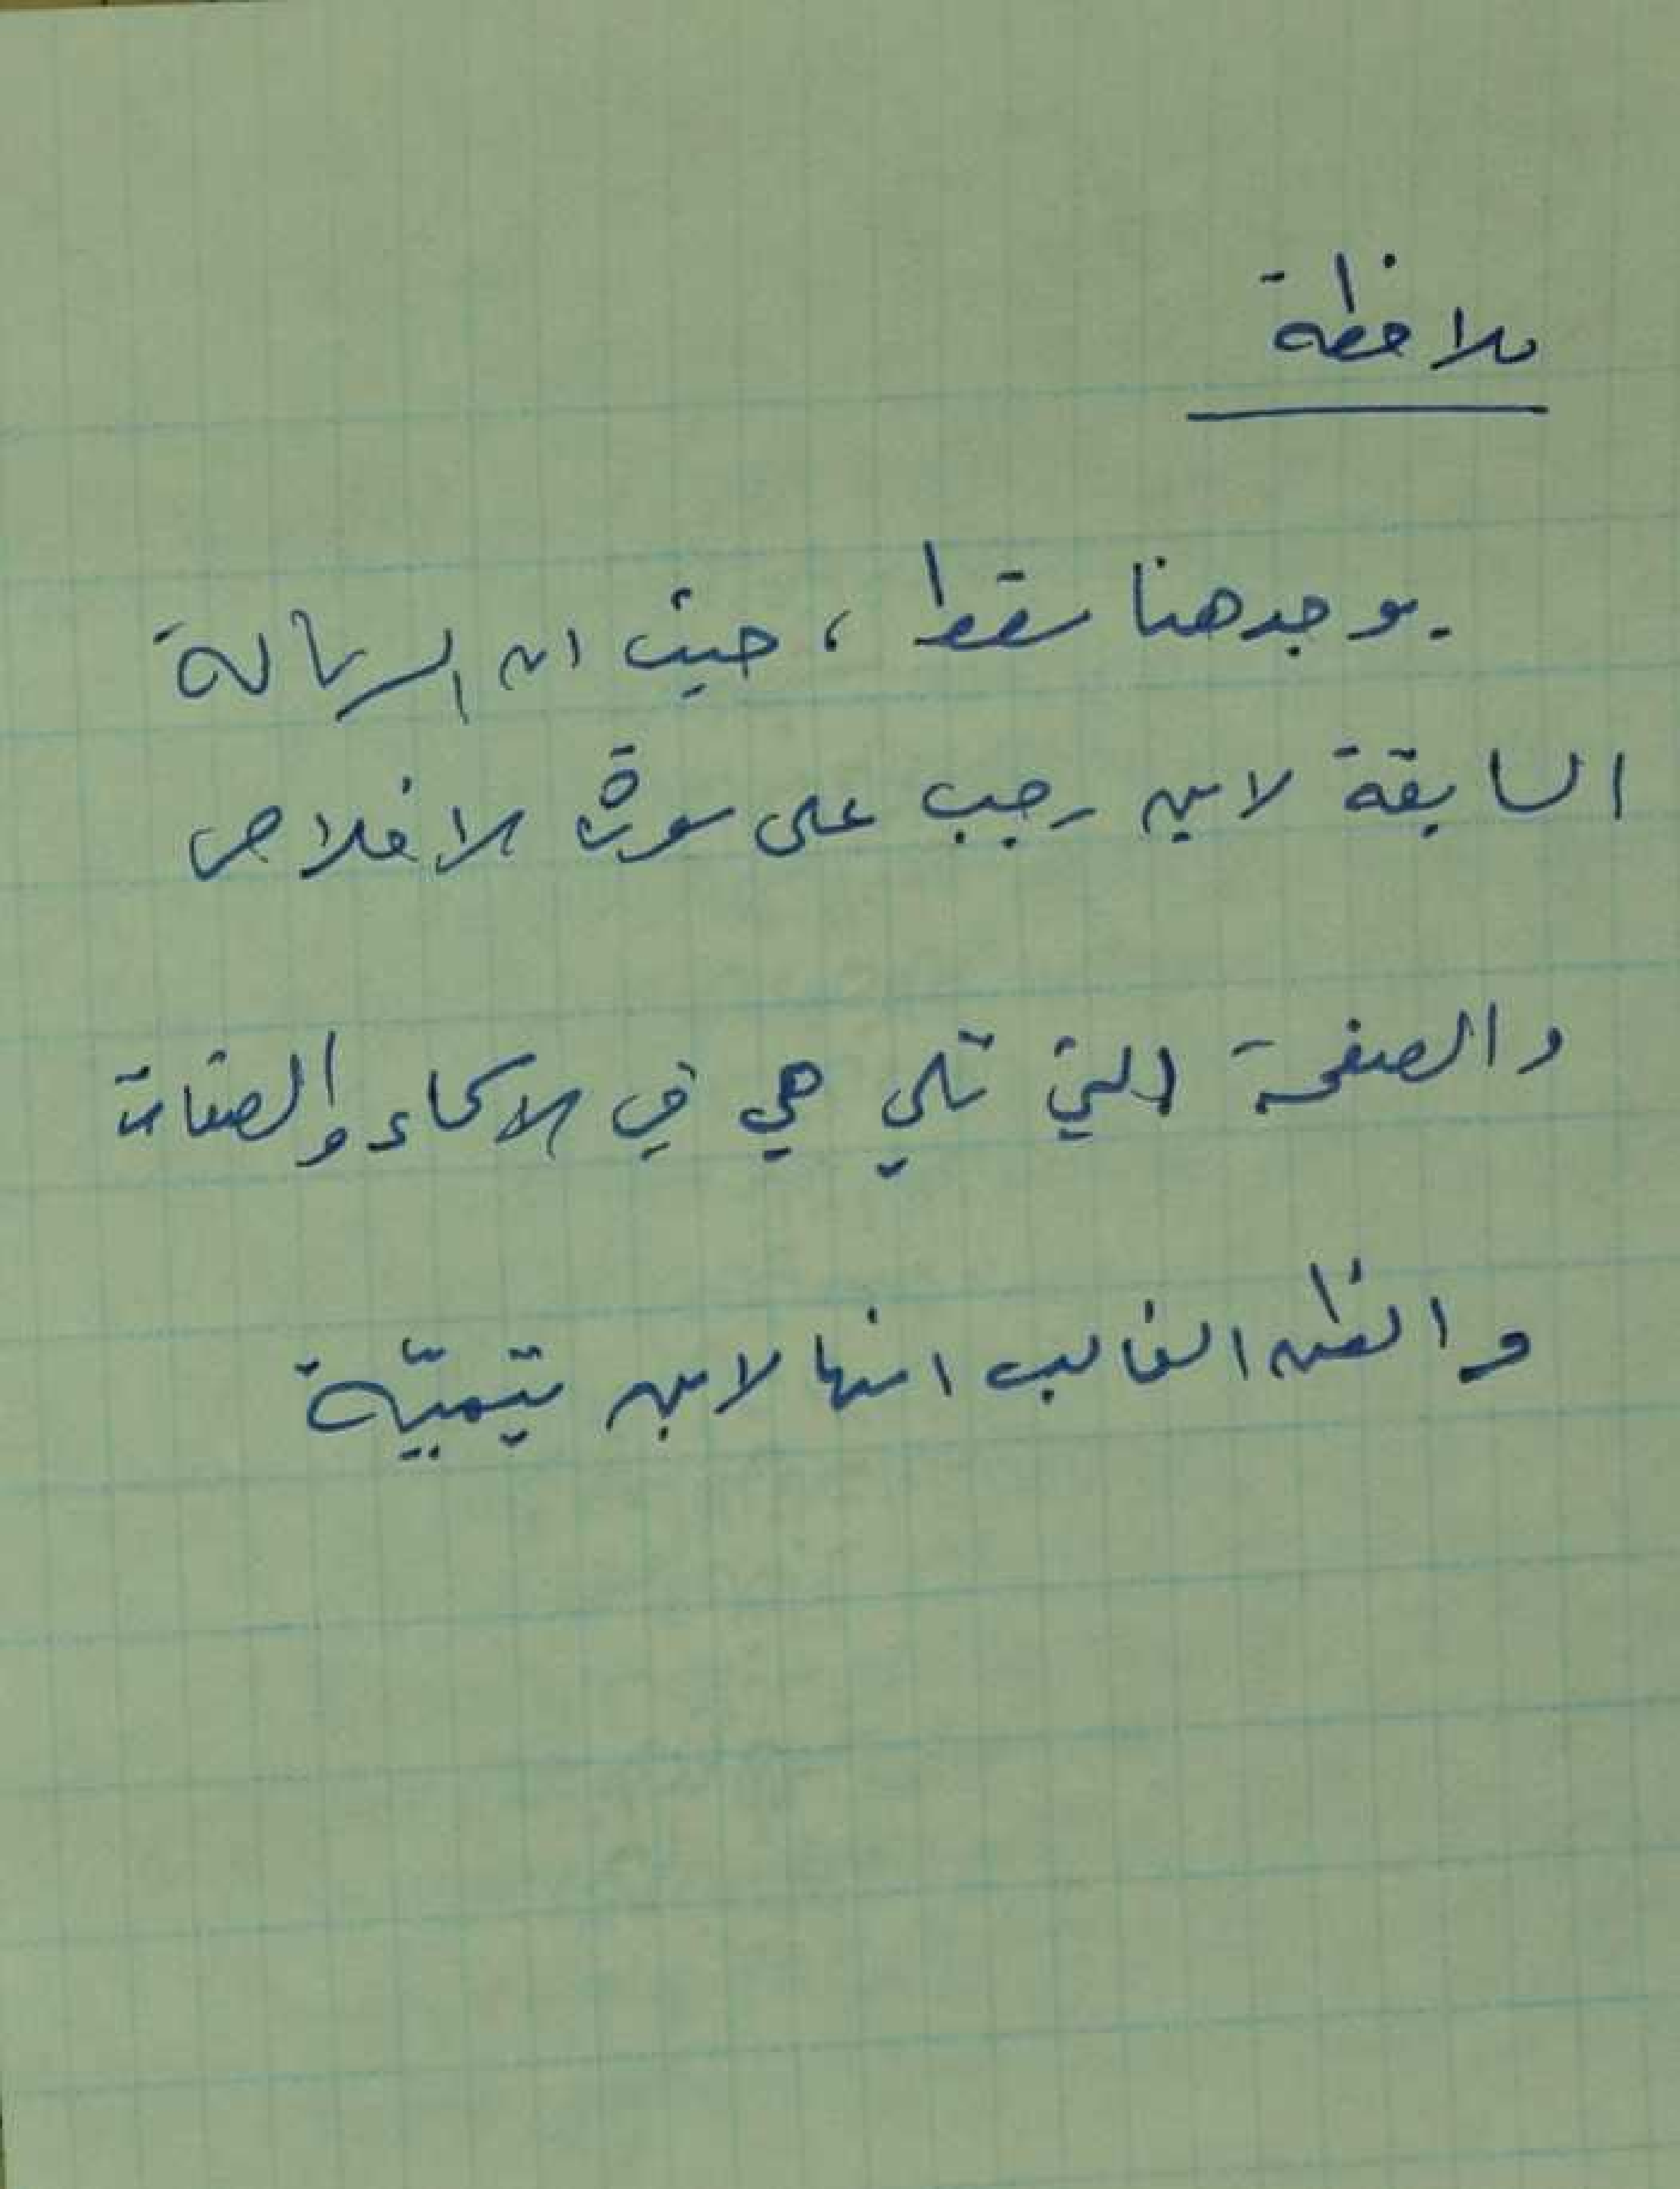 ملاحظة
يوجد هنا سقط ، حيث ان الرسالة
السابقة لابن رجب على سورة الاخلاص
والصفحة التي تلي هي في الاسماء والصفات
والظن الغالب انها لابن تيميّة